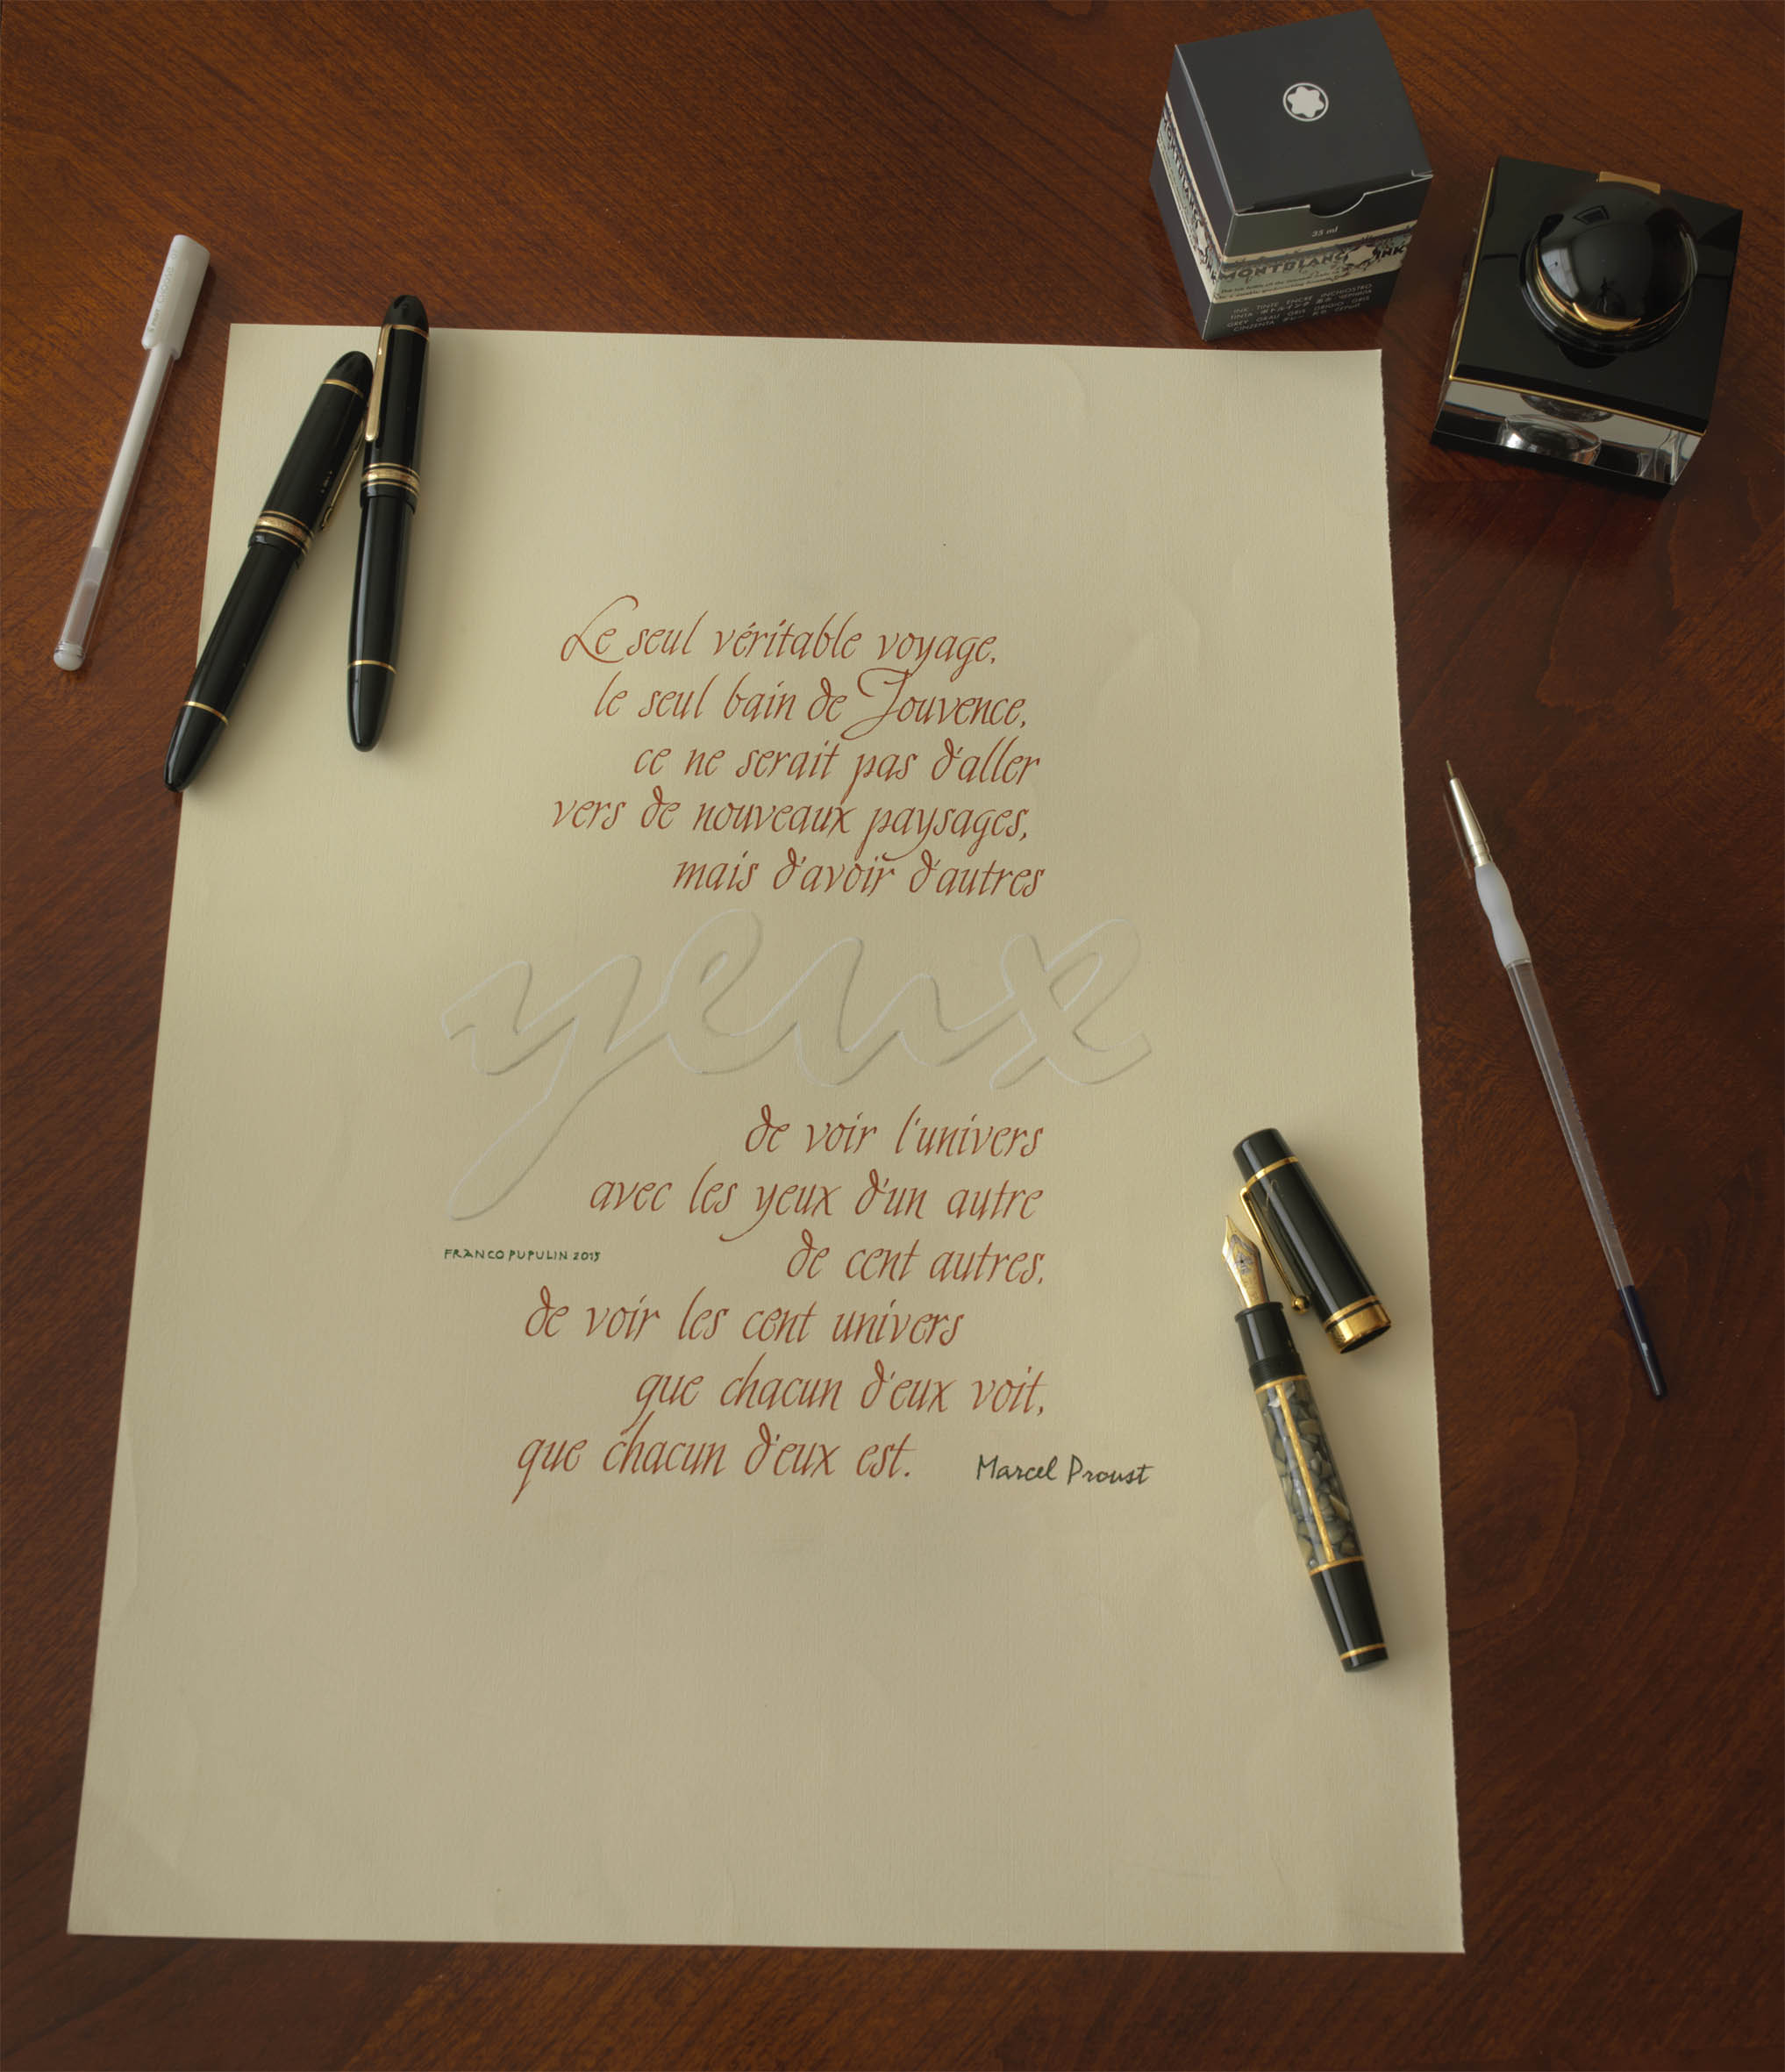 33 ml
MONTBLANC INK
INK TINTE ENCRE INCHIOSTRO
GREY GRAU GRIS GRIGIO GRIS
Le seul véritable voyage,
le seul bain de Jouvence,
ce ne serait pas d'aller
vers de nouveaux paysages,
mais d'avoir d'autres
yeux
de voir l'univers
avec les yeux d'un autre
FRANCO PUPULIN 2015
de cent autres,
de voir les cent univers
que chacun d'eux voit,
que chacun d'eux est.
Marcel Proust